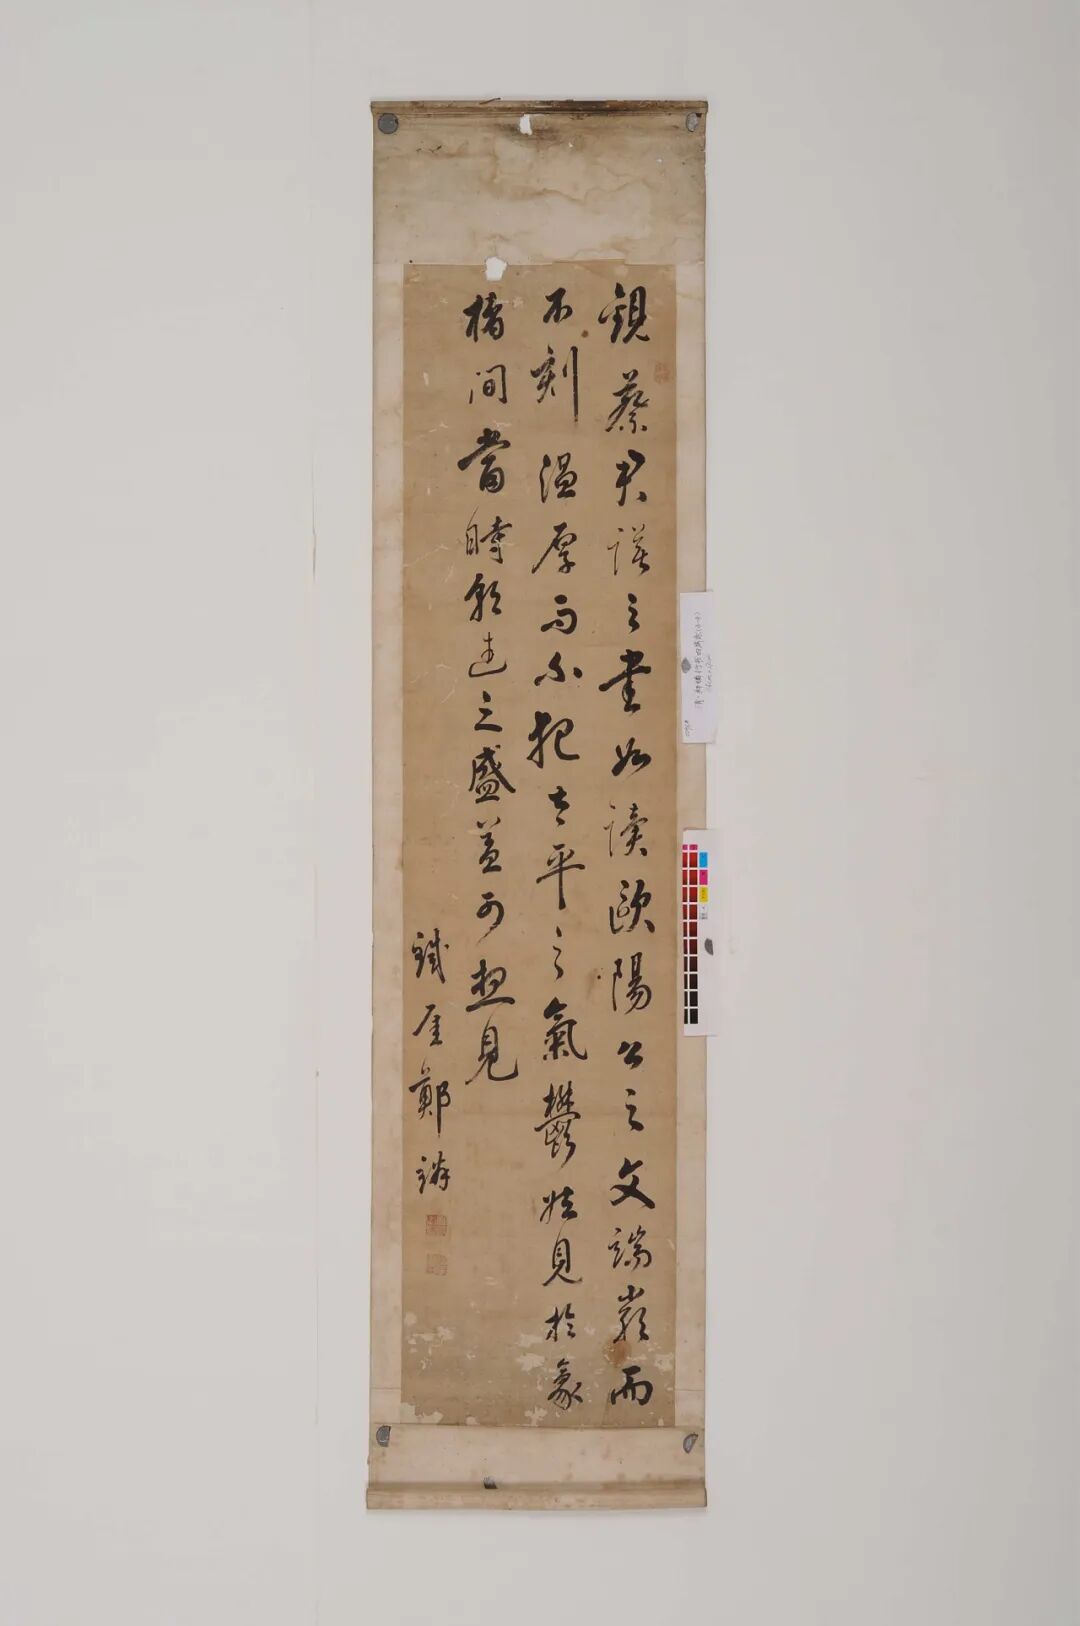 觀蔡君謨之書如讀歐陽公之文端嚴而
不刻溫厚而不犯太平之氣鬱然見於豪
楮間當時朝廷之盛蓋可想見
鐵厓鄭